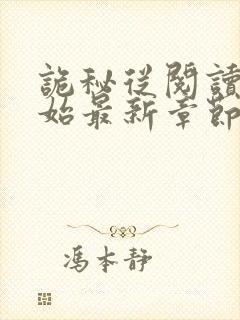 詭秘從閱讀
始最新章節
馮本靜